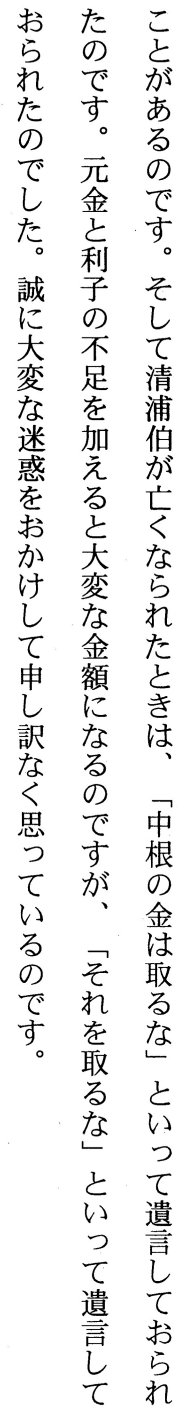 ことがあるのです。そして清浦伯が亡くなられたときは、「中根の金は取るな」といって遺言しておられ
たのです。元金と利子の不足を加えると大変な金額になるのですが、「それを取るな」といって遺言して
おられたのでした。誠に大変な迷惑をおかけして申し訳なく思っているのです。